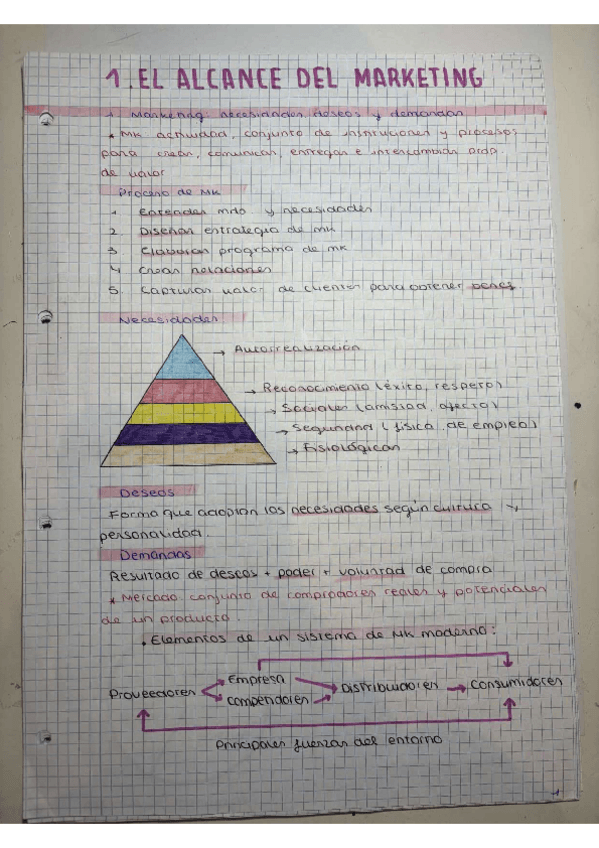 1. EL ALCANCE DEL MARKETING
1. Marketing: necesidades, deseos y demandas
* MK actividad, conjunto de instituciones y procesos
para crear, comunicar, entregar e intercambiar prop.
de valor
Proceso de MK
1 Entender mdo y necesidades
2. Diseñar estrategia de MK
3. Elaborar programa de MK
4. Crear relaciones
5. Capturar valor de clientes para obtener benef.
Necesidades
→ Autorrealización
→ Reconocimiento (éxito, respeto)
→ Sociales (amistad, afecto)
→ Seguridad (física, de empleo)
→ Fisiológicas
Deseos
Forma que adoptan las necesidades según cultura y
personalidad.
Demandas
Resultado de deseos + poder + voluntad de compra
* Mercado conjunto de compradores reales y potenciales
de un producto.
• Elementos de un sistema de MK moderno:
Proveedores
Empresa
Competidores
Distribuidores → Consumidores
Principales fuerzas del entorno
1